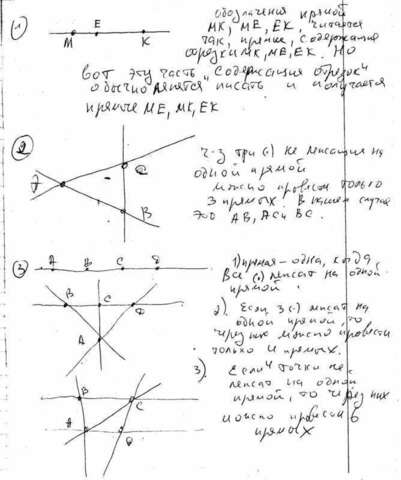 1
M E K
обозначения прямой
МК, МЕ, ЕК, читается
так, прямые, содержащие
отрезки МК, МЕ, ЕК. Но
вот эту часть "содержащия отрезок"
обычно ленятся писать и получается
прямые МЕ, МК, ЕК
2
С
В
ч-з три (.) не лежащие на
одной прямой
можно провести только
3 прямых. В нашем случае
это АВ, АС и ВС.
3
А В С D
1) прямая - одна, когда
все (.) лежат на одной
прямой.
В С D
А
2). Если 3 (.) лежат на
одной прямой, то
через них можно провести
только 4 прямых.
3).
Если 4 точки не
лежат на одной
прямой, то через них
можно провести 6
прямых
В
С
А
D